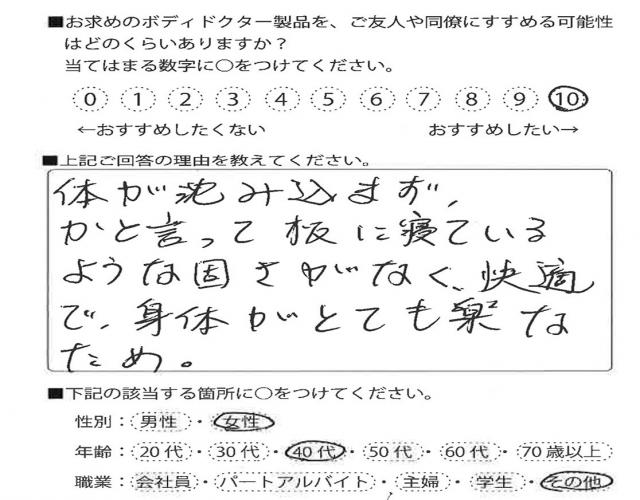 ■お求めのボディドクター製品を、ご友人や同僚にすすめる可能性
はどのくらいありますか？
当てはまる数字に○をつけてください。
0 1 2 3 4 5 6 7 8 9 10
←おすすめしたくない おすすめしたい→
■上記ご回答の理由を教えてください。
体が沈み込まず、
かと言って板に寝ている
ような固さがなく、快適
で、身体がとても楽な
ため。
■下記の該当する箇所に○をつけてください。
性別：男性・女性
年齢：20代・30代・40代・50代・60代・70歳以上
職業：会社員・パートアルバイト・主婦・学生・その他